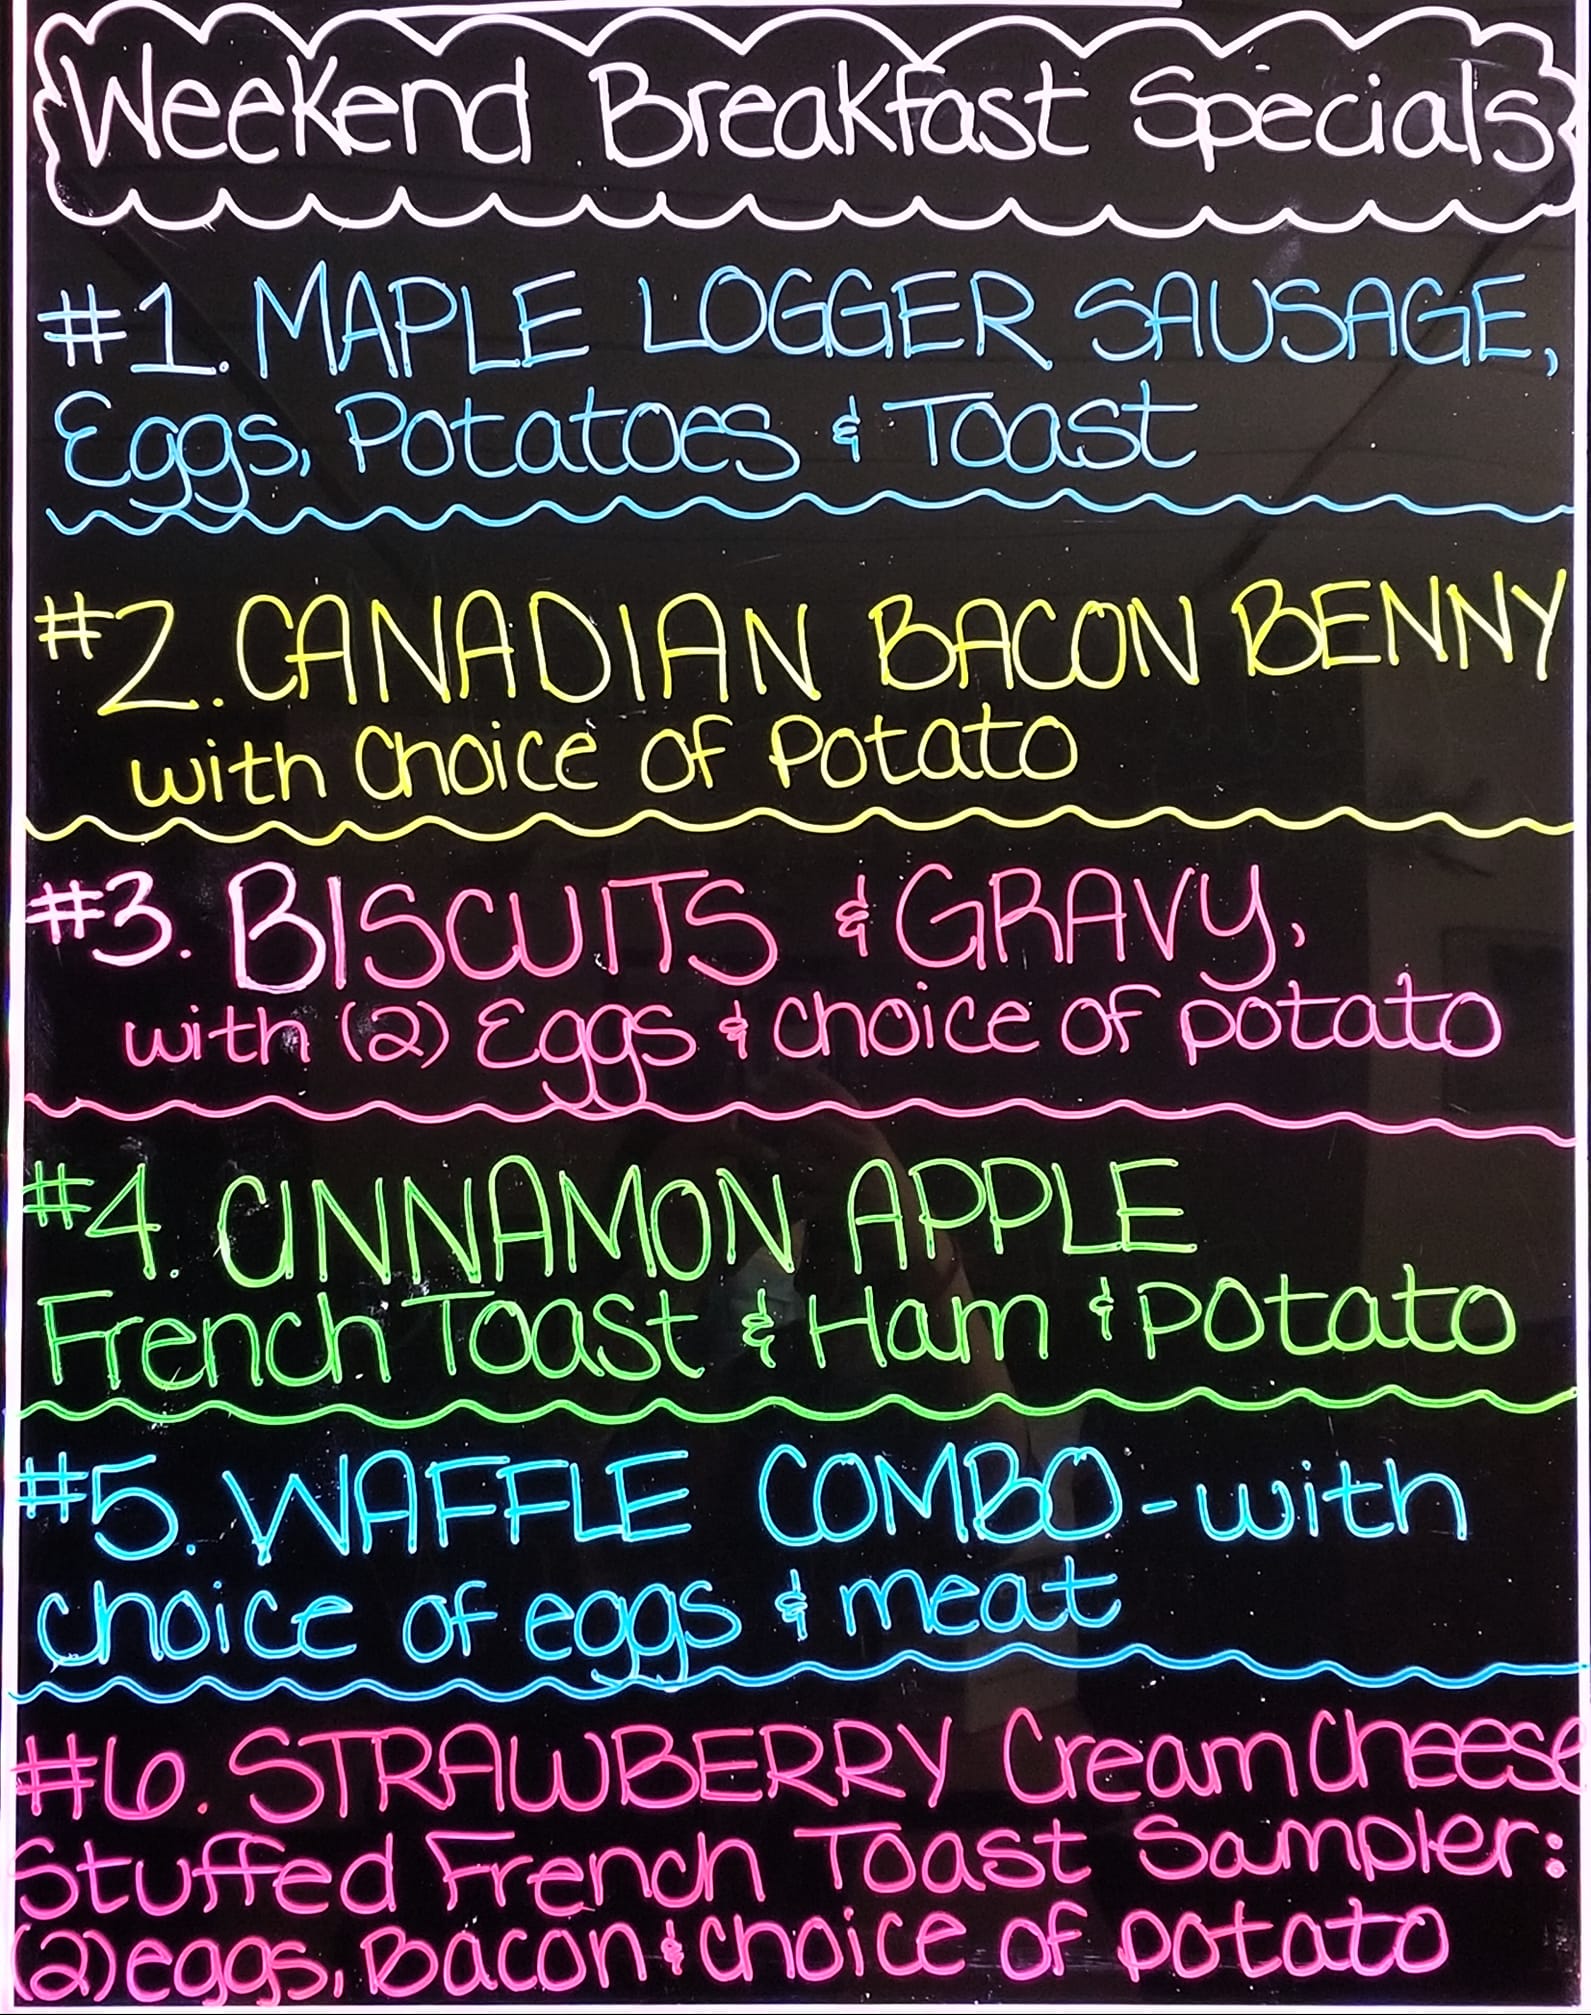 Weekend Breakfast Specials
#1. MAPLE LOGGER SAUSAGE,
Eggs, Potatoes & Toast
#2. CANADIAN BACON BENNY
with Choice of Potato
#3. BISCUITS & GRAVY,
with (2) Eggs & choice of potato
#4. CINNAMON APPLE
French Toast & Ham & potato
#5. WAFFLE COMBO - with
choice of eggs & meat
#6. STRAWBERRY Cream Cheese
Stuffed French Toast Sampler:
(2) eggs, Bacon & choice of potato